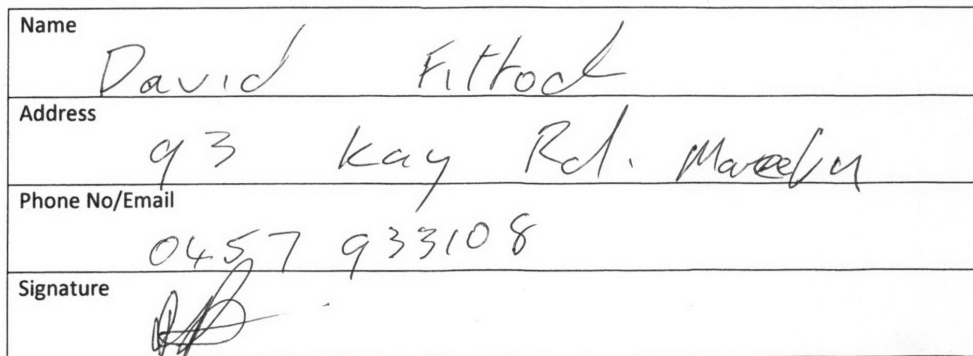 Name
David Fittock
Address
93 Kay Rd.
Phone No/Email
0457 933108
Signature